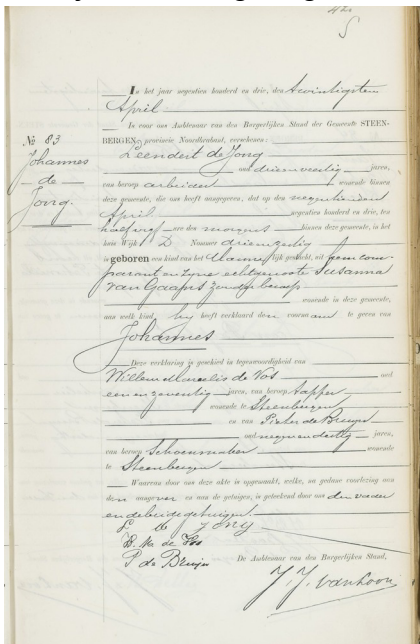 In het jaar negentien honderd en drie, den twintigsten
April
In voor ons Ambtenaar van den Burgerlijken Stand der Gemeente STEEN-
BERGEN, provincie Noordbrabant, verschenen:
No 83
Johannes
de
Jong.
Leendert de Jong
oud drieenveertig jaren,
van beroep arbeider woonende binnen
deze gemeente, die ons heeft aangegeven, dat op den negentienden
April negentien honderd en drie, ten
half vijf ure des morgens binnen deze gemeente, in het
huis Wijk D Nummer drieenzestig
is geboren een kind van het Mannelijk geslacht, uit hem com-
parant en zyne echtgenoote Susanna
van Gaans zonder beroep
woonende in deze gemeente,
aan welk kind hij heeft verklaard den voornaam te geven van
Johannes
Deze verklaring is geschied in tegenwoordigheid van
Willem Marcelis de Vos oud
een en zeventig jaren, van beroep tapper
woonende te Steenbergen
en van Pieter de Bruijn
oud negenendertig jaren,
van beroep Schoenmaker woonende
te Steenbergen
Waarvan door ons deze akte is opgemaakt, welke, na gedane voorlezing aan
den aangever en aan de getuigen, is geteekend door ons den vader
en de beide getuigen.
L de Jong
W. Ma de Vos
P de Bruijn
De Ambtenaar van den Burgerlijken Stand,
J. J. van Loon